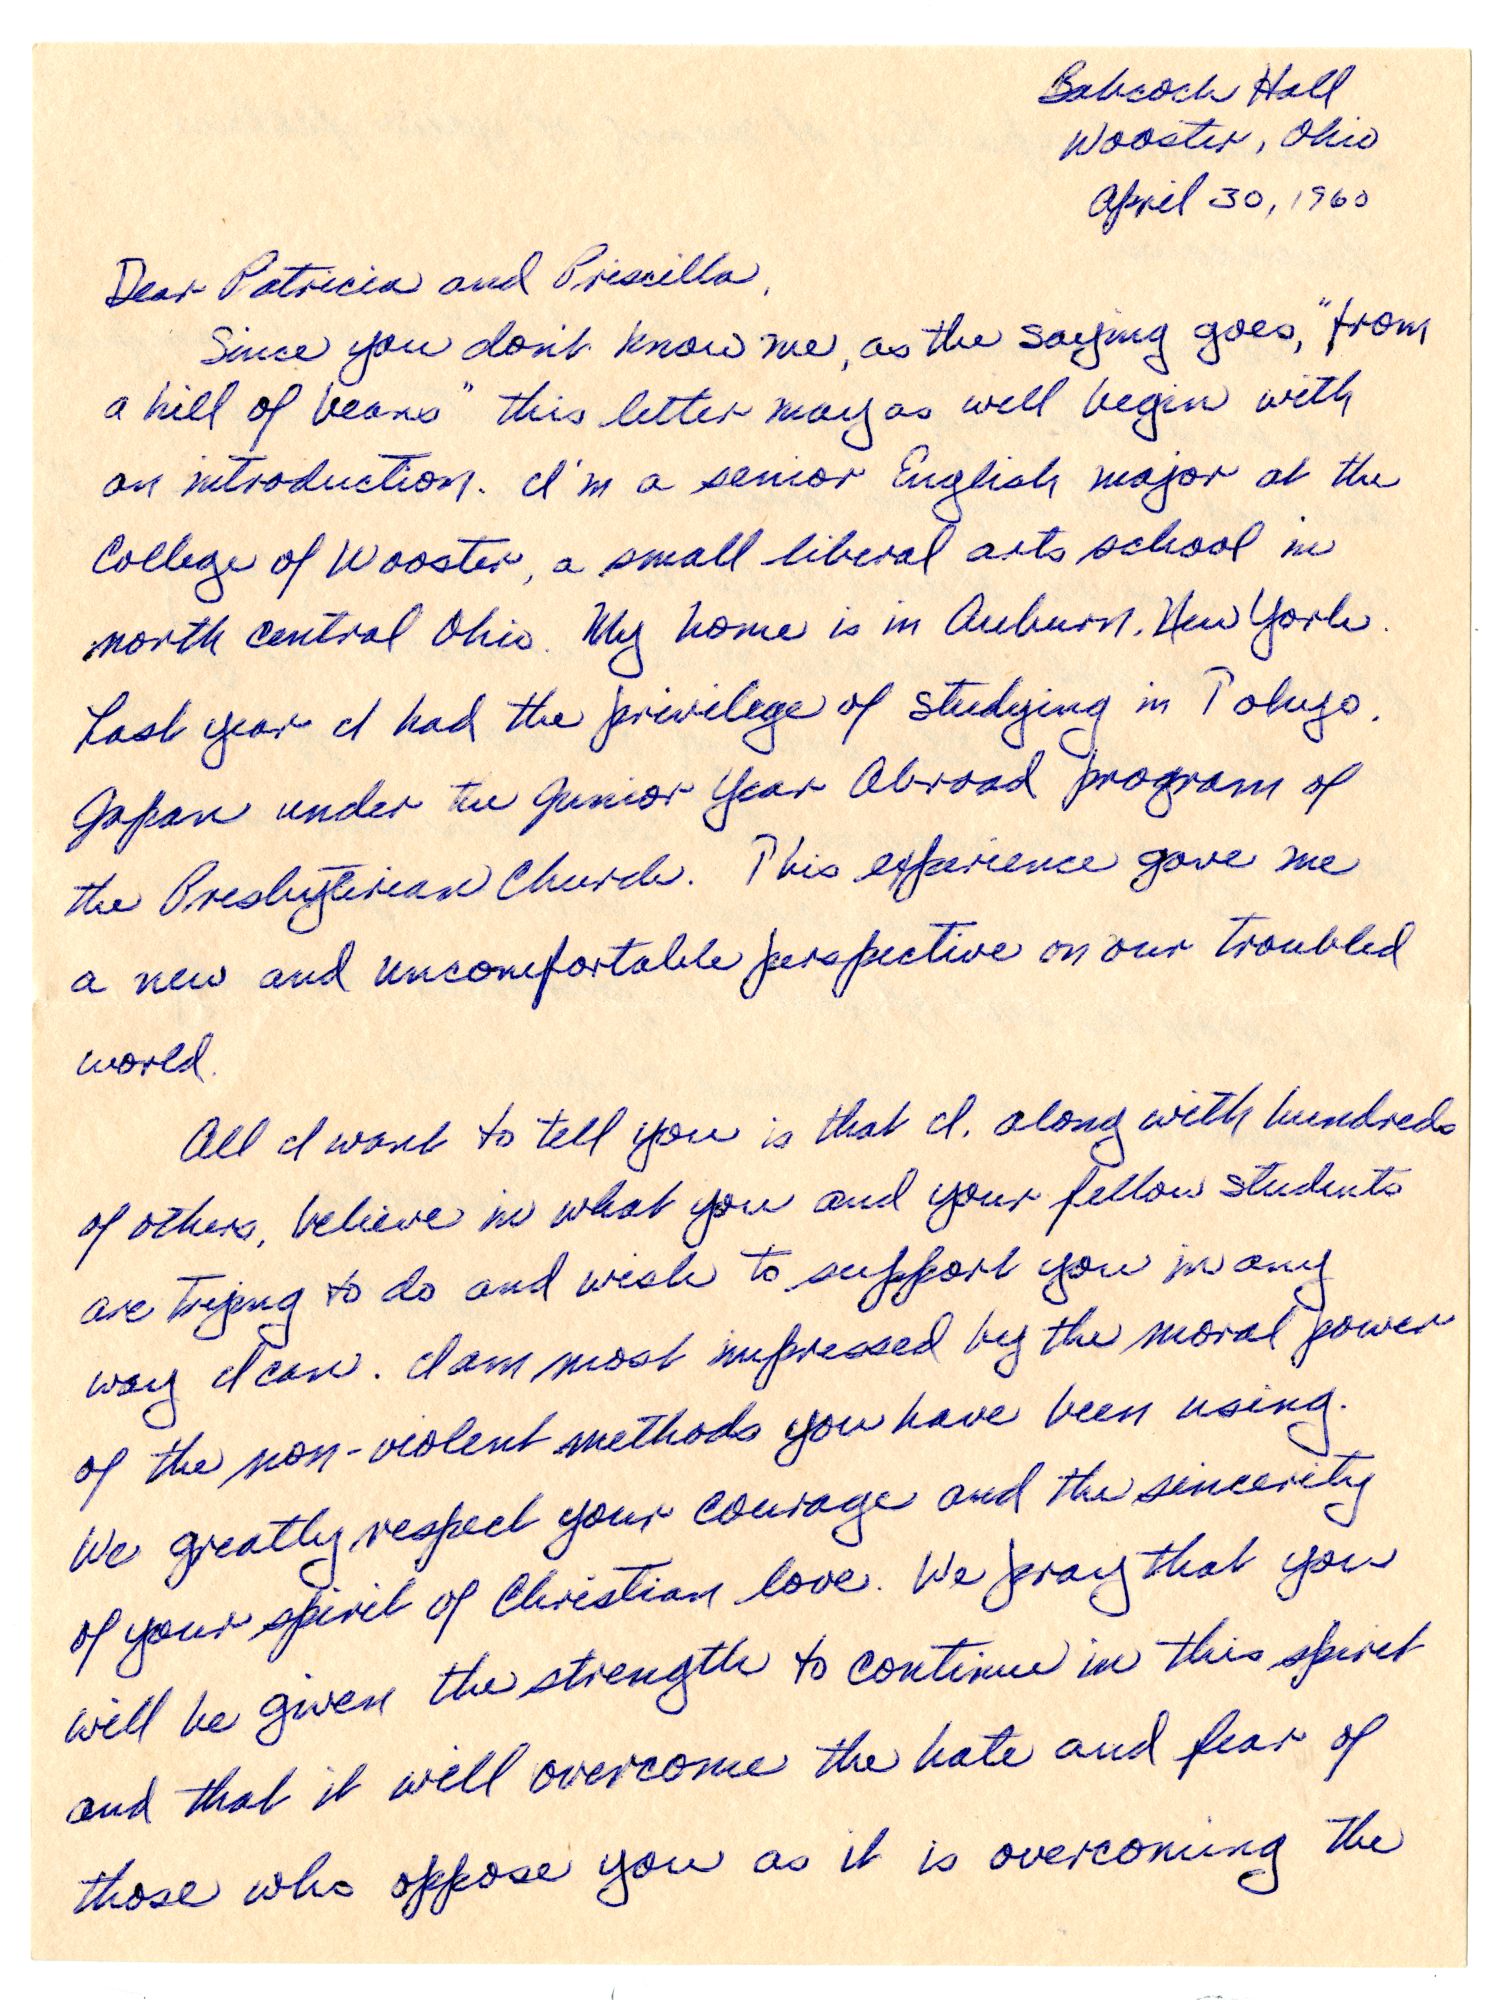 Babcock Hall
Wooster, Ohio
April 30, 1960
Dear Patricia and Priscilla,
Since you don't know me, as the saying goes, "from
a hill of beans" this letter may as well begin with
an introduction. I'm a senior English major at the
College of Wooster, a small liberal arts school in
north central Ohio. My home is in Auburn, New York.
Last year I had the privilege of studying in Tokyo,
Japan under the Junior Year Abroad program of
the Presbyterian Church. This experience gave me
a new and uncomfortable perspective on our troubled
world.
All I want to tell you is that I, along with hundreds
of others, believe in what you and your fellow students
are trying to do and wish to support you in any
way I can. I am most impressed by the moral power
of the non-violent methods you have been using.
We greatly respect your courage and the sincerity
of your spirit of Christian love. We pray that you
will be given the strength to continue in this spirit
and that it will overcome the hate and fear of
those who oppose you as it is overcoming the